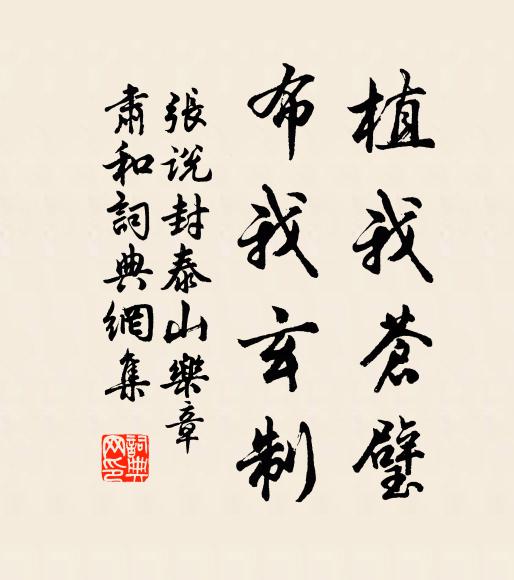 植我蒼璧
布我玄制
張说封泰山樂章
肅和詞典網集
詞典
网印